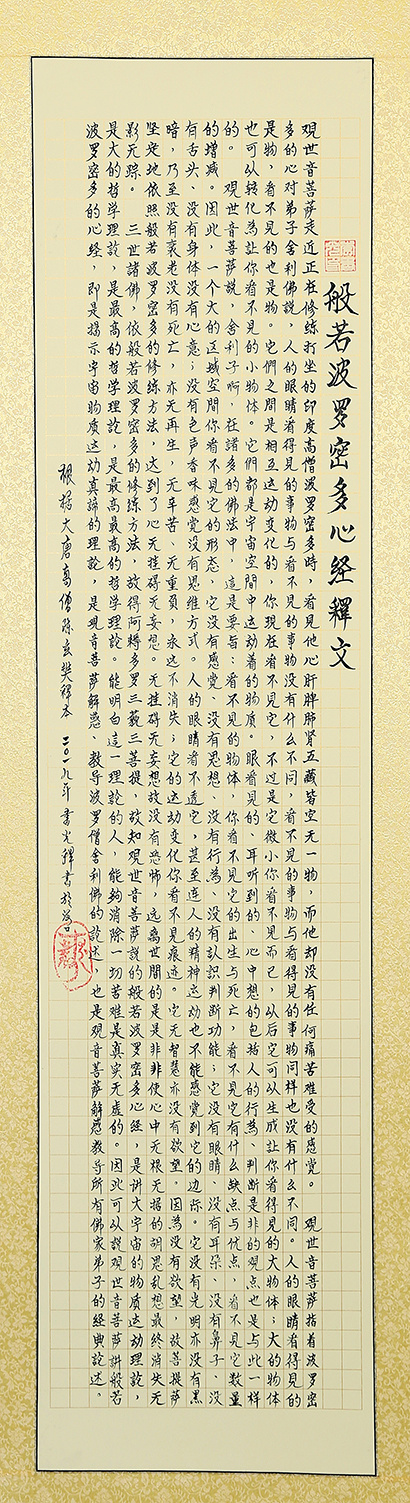 般若波罗密多心经释文
观世音菩萨走近正在修练打坐的印度高僧波罗密多时，看见他心肝脾肺肾五藏皆空无一物，而他却没有任何痛苦难受的感觉。 观世音菩萨指着波罗密
多的心对弟子舍利佛説，人的眼睛看得见的事物与看不见的事物没有什么不同，看不见的事物与看得见的事物同样也没有什么不同。人的眼睛看得见的
是物，看不见的也是物。它們之間是相互运动变化的，你现在看不见它，不过是它微小你看不见而已，以后它可以生成让你看得见的大物体；大的物体
也可以轉化為让你看不见的小物体。它們都是宇宙空間中运动着的物质。眼看見的、耳听到的、心中想的包括人的行為、判断是非的观点也是与此一样
的。 观世音菩萨説，舍利子啊，在諸多的佛法中，這是要旨：看不见的物体，你看不见它的出生与死亡，看不见它有什么缺点与优点，看不见它数量
的增减。因此，一个大的区域空間你看不见它的形态，它没有感觉、没有思想、没有行為、没有认識判断功能；它没有眼睛、没有耳朵、没有鼻子、没
有舌头、没有身体没有心意；没有色声香味感觉没有思维方式。人的眼睛看不透它，甚至连人的精神运动也不能感觉到它的边际。它没有光明亦没有黑
暗，乃至没有衰老没有死亡，亦无再生，无辛苦、无重負，永远不消失；它的运动变化你看不见痕迹。它无智慧亦没有欲望，因為没有欲望，故菩提萨
坚定地依照般若波罗密多的修练方法，达到了心无挂碍无妄想。无挂碍无妄想故没有恐怖，远离世間的是是非非使心中无根无据的胡思乱想最终消失无
影无踪。 三世諸佛，依般若波罗密多的修练方法，故得阿耨多罗三藐三菩提，故知观世音菩萨説的般若波罗密多心经，是讲大宇宙的物质运动理論，
是大的哲学理論，是最高的哲学理論，是最高最高的哲学理論。能明白這一理論的人，能夠消除一切苦难是真实无虚的。因此可以説观世音菩萨讲般若
波罗密多的心经，即是揭示宇宙物质运动真諦的理論，是观音菩萨解惑、教导波罗僧舍利佛的論述，也是观音菩萨解惑教导所有佛家弟子的经典論述。
根据大唐高僧陈玄奘释本 二〇一九年 書光释書於